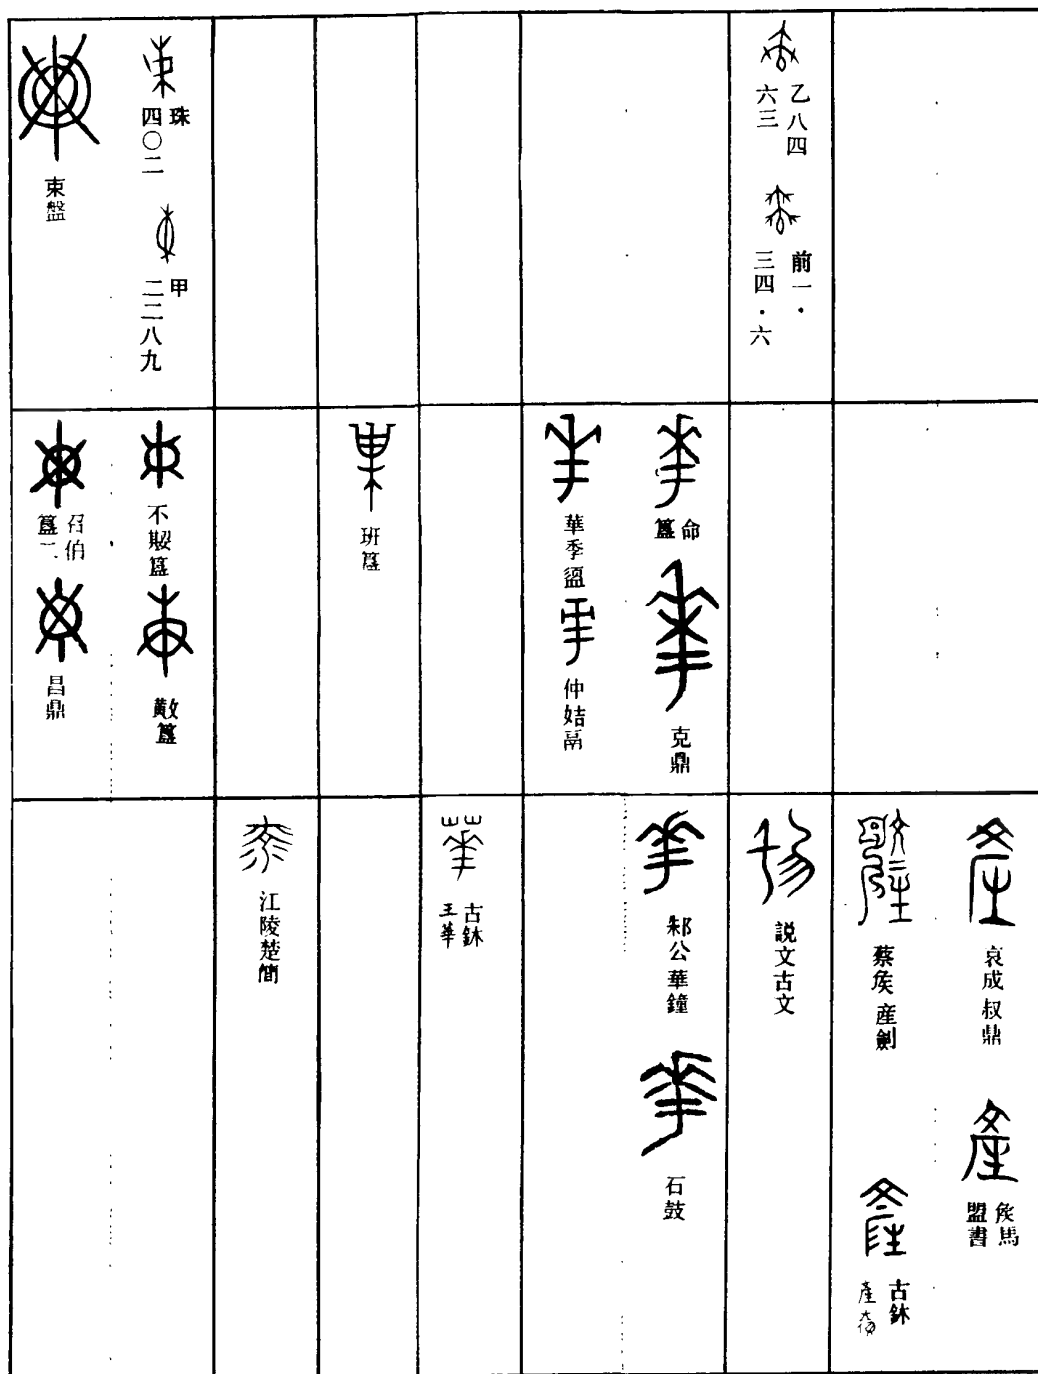 乙八四
六三
前一·
三四·六
珠
四〇二
甲
二二八九
束盤
命
簋
克鼎
華季盨
仲姞鬲
班簋
不𡢁簋
𢾭簋
召伯
簋二
曶鼎
哀成叔鼎
矦馬
盟書
蔡矦產劍
古鉨
説文古文
邾公華鐘
石鼓
古鉨
王華
江陵楚簡